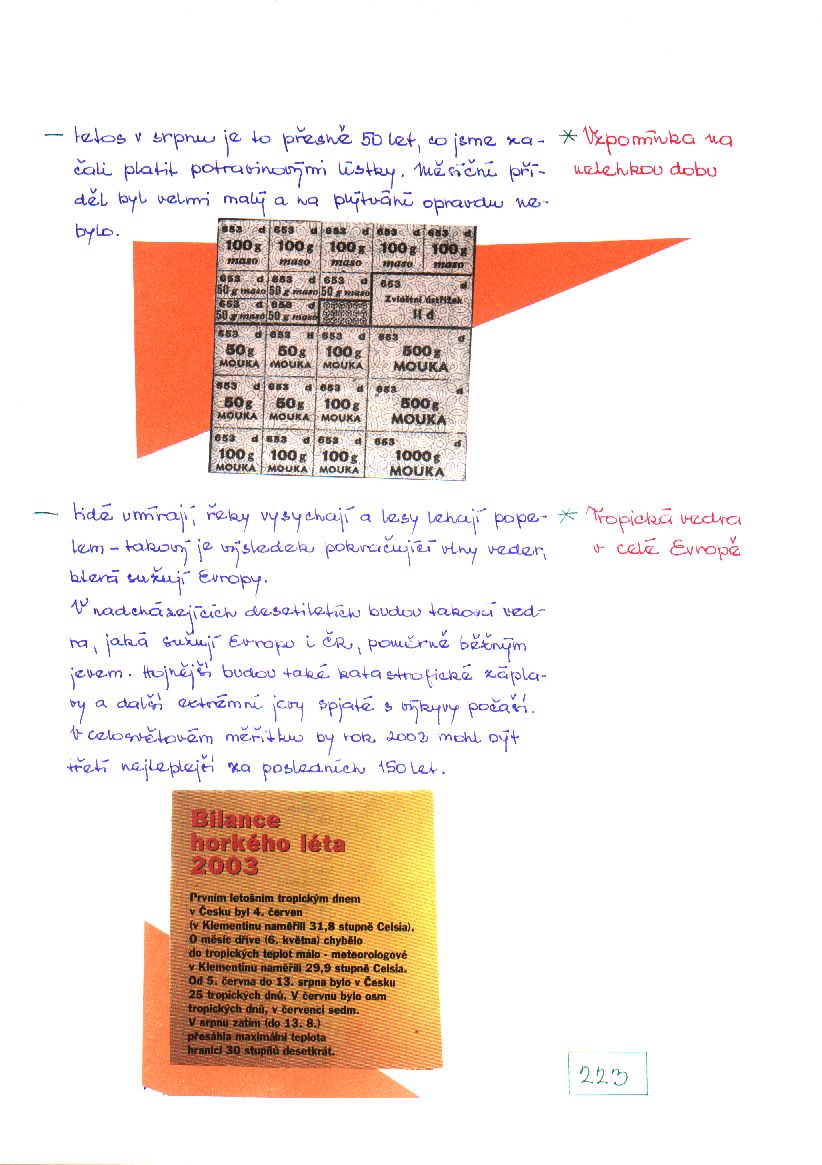 — letos v srpnu je to přesně 50 let, co jsme za-
čali platit potravinovými lístky. Měsíční pří-
děl byl velmi malý a na plýtvání opravdu ne-
bylo.
* Vzpomínka na
nelehkou dobu
653 d 653 d 653 d 653 d 653 d
100 g 100 g 100 g 100 g 100 g
maso maso maso maso maso
653 d 653 d 653 d 653 d
50 g maso 50 g maso 50 g maso Zvláštní ústřižek
653 d 653 d II d
50 g maso 50 g maso
653 d 653 d 653 d 653 d
50 g 50 g 100 g 500 g
MOUKA MOUKA MOUKA MOUKA
653 d 653 d 653 d 653 d
50 g 50 g 100 g 500 g
MOUKA MOUKA MOUKA MOUKA
653 d 653 d 653 d 653 d
100 g 100 g 100 g 1000 g
MOUKA MOUKA MOUKA MOUKA
— Lidé umírají, řeky vysychají a lesy lehají pope-
lem – takový je výsledek pokračující vlny veder,
která sužují Evropy.
V nadcházejících desetiletích budou taková ved-
ra, jaká sužují Evropu i ČR, poměrně běžným
jevem. Hojnější budou také katastrofické zápla-
vy a další extrémní jevy spjaté s výkyvy počasí.
V celosvětovém měřítku by rok 2002 mohl být
třetí nejteplejší za posledních 150 let.
* Tropická vedra
v celé Evropě
Bilance
horkého léta
2003
Prvním letošním tropickým dnem
v Česku byl 4. červen
(v Klementinu naměřili 31,8 stupně Celsia).
O měsíc dříve (6. května) chybělo
do tropických teplot málo - meteorologové
v Klementinu naměřili 29,9 stupně Celsia.
Od 5. června do 13. srpna bylo v Česku
25 tropických dnů. V červnu bylo osm
tropických dnů, v červenci sedm.
V srpnu zatím (do 13. 8.)
přesáhla maximální teplota
hranici 30 stupňů desetkrát.
223